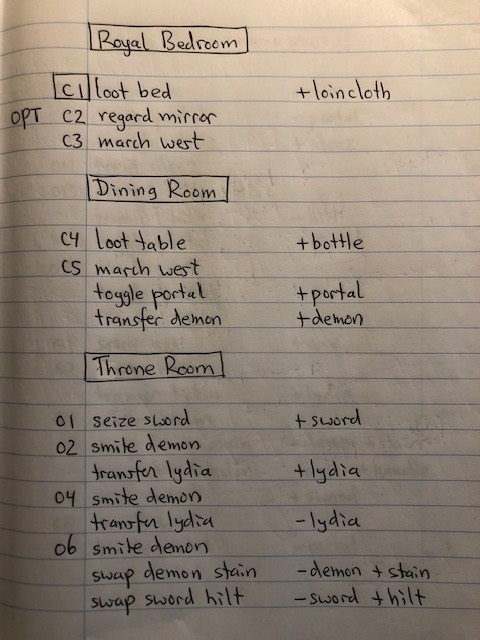 Royal Bedroom
C1 loot bed +loincloth
OPT C2 regard mirror
C3 march west
Dining Room
C4 loot table +bottle
C5 march west
toggle portal +portal
transfer demon +demon
Throne Room
01 seize sword +sword
02 smite demon
transfer lydia +lydia
04 smite demon
transfer lydia -lydia
06 smite demon
swap demon stain -demon +stain
swap sword hilt -sword +hilt